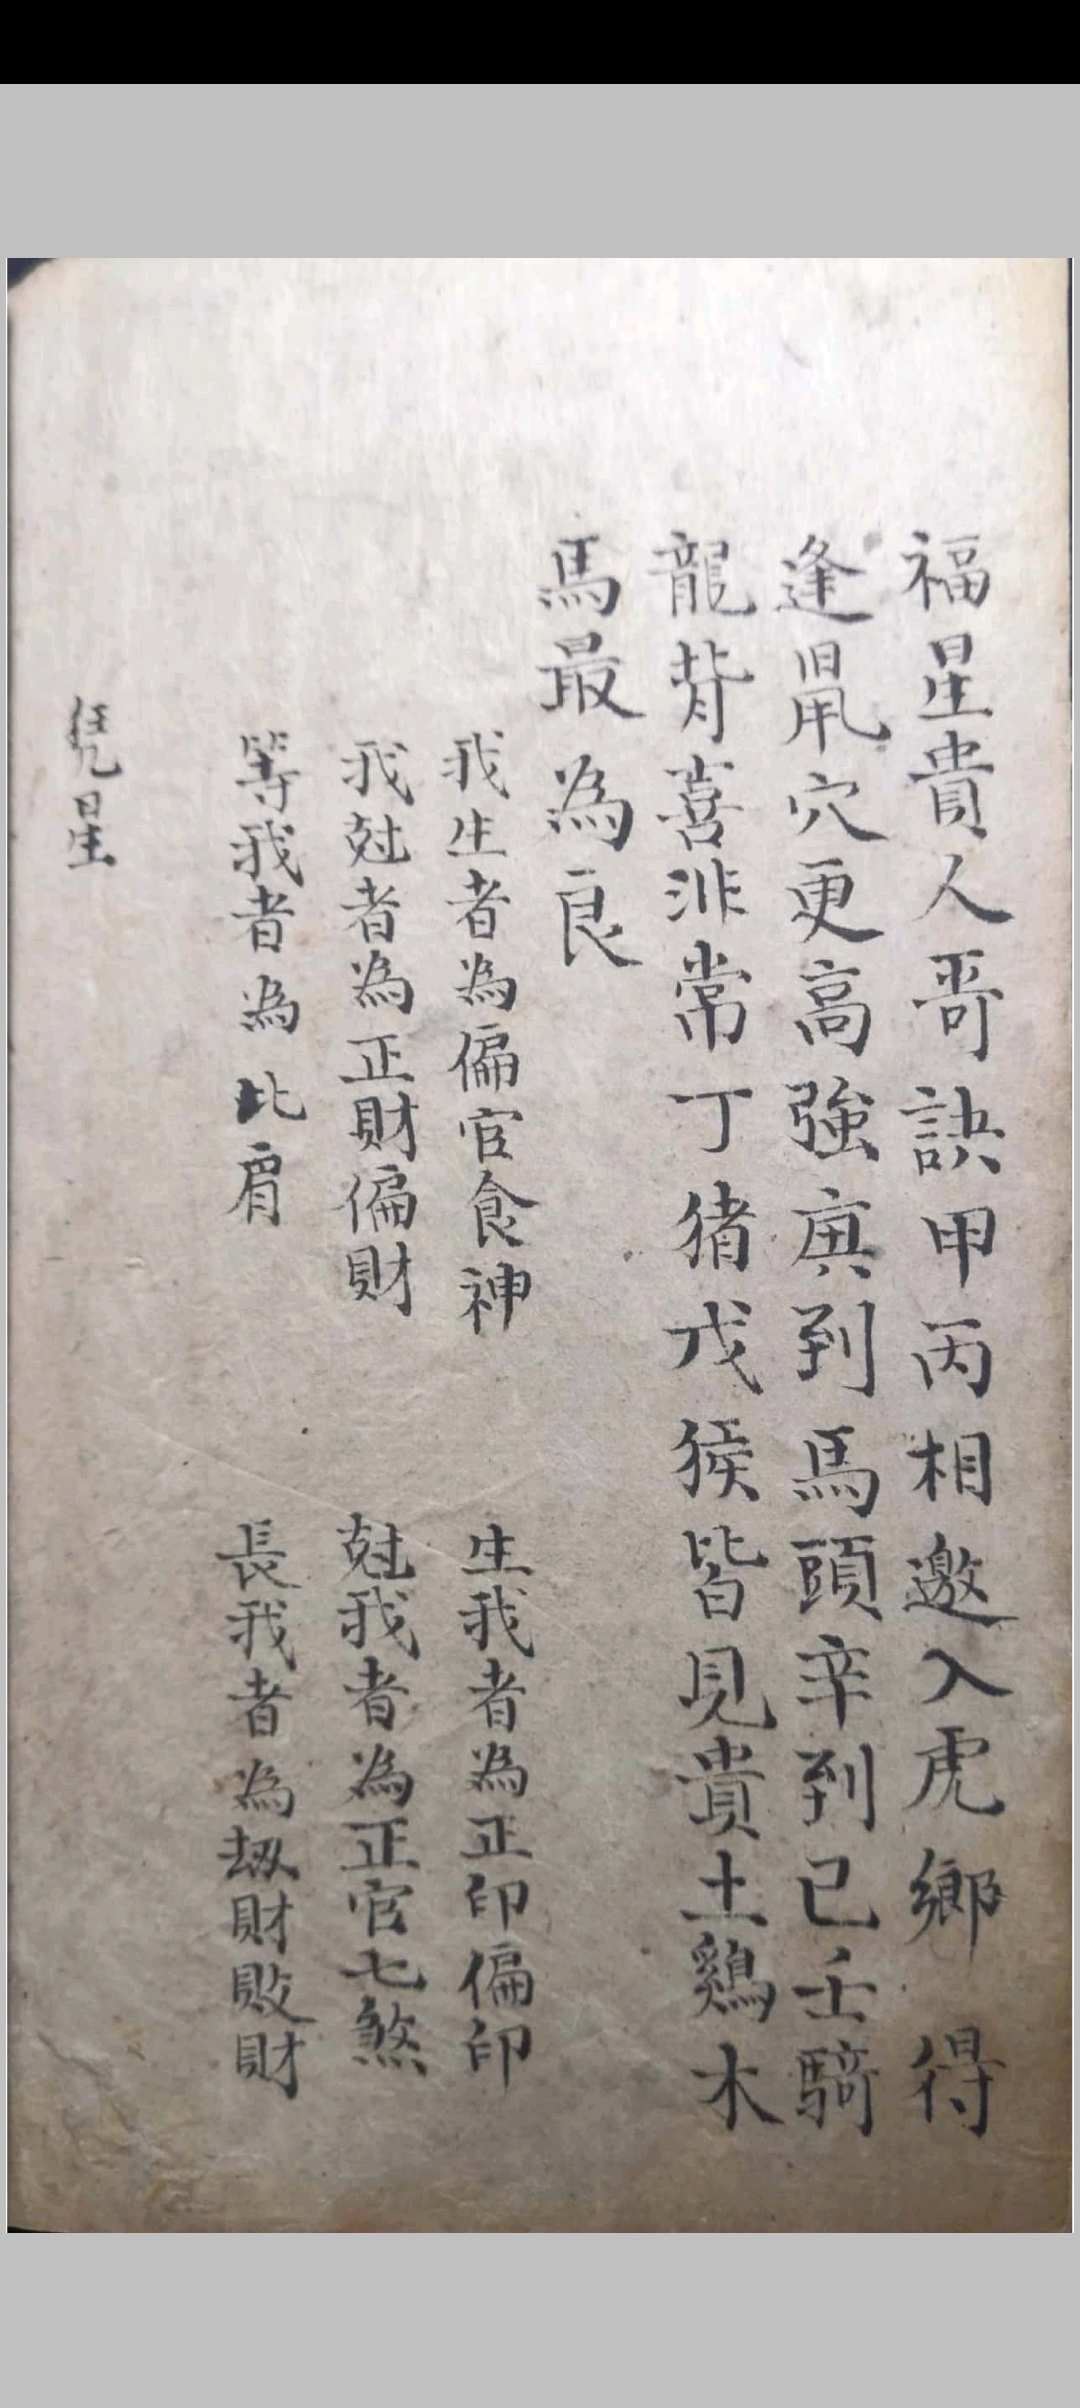 福星貴人哥訣甲丙相邀入虎鄉 得
逢鼠穴更高強庚到馬頭辛到巳壬騎
龍背喜非常丁猪戊猴皆見貴土鷄木
馬最為良
我生者為偏官食神 生我者為正印偏印
我尅者為正財偏財 尅我者為正官七煞
等我者為比肩 長我者為刼財敗財
星